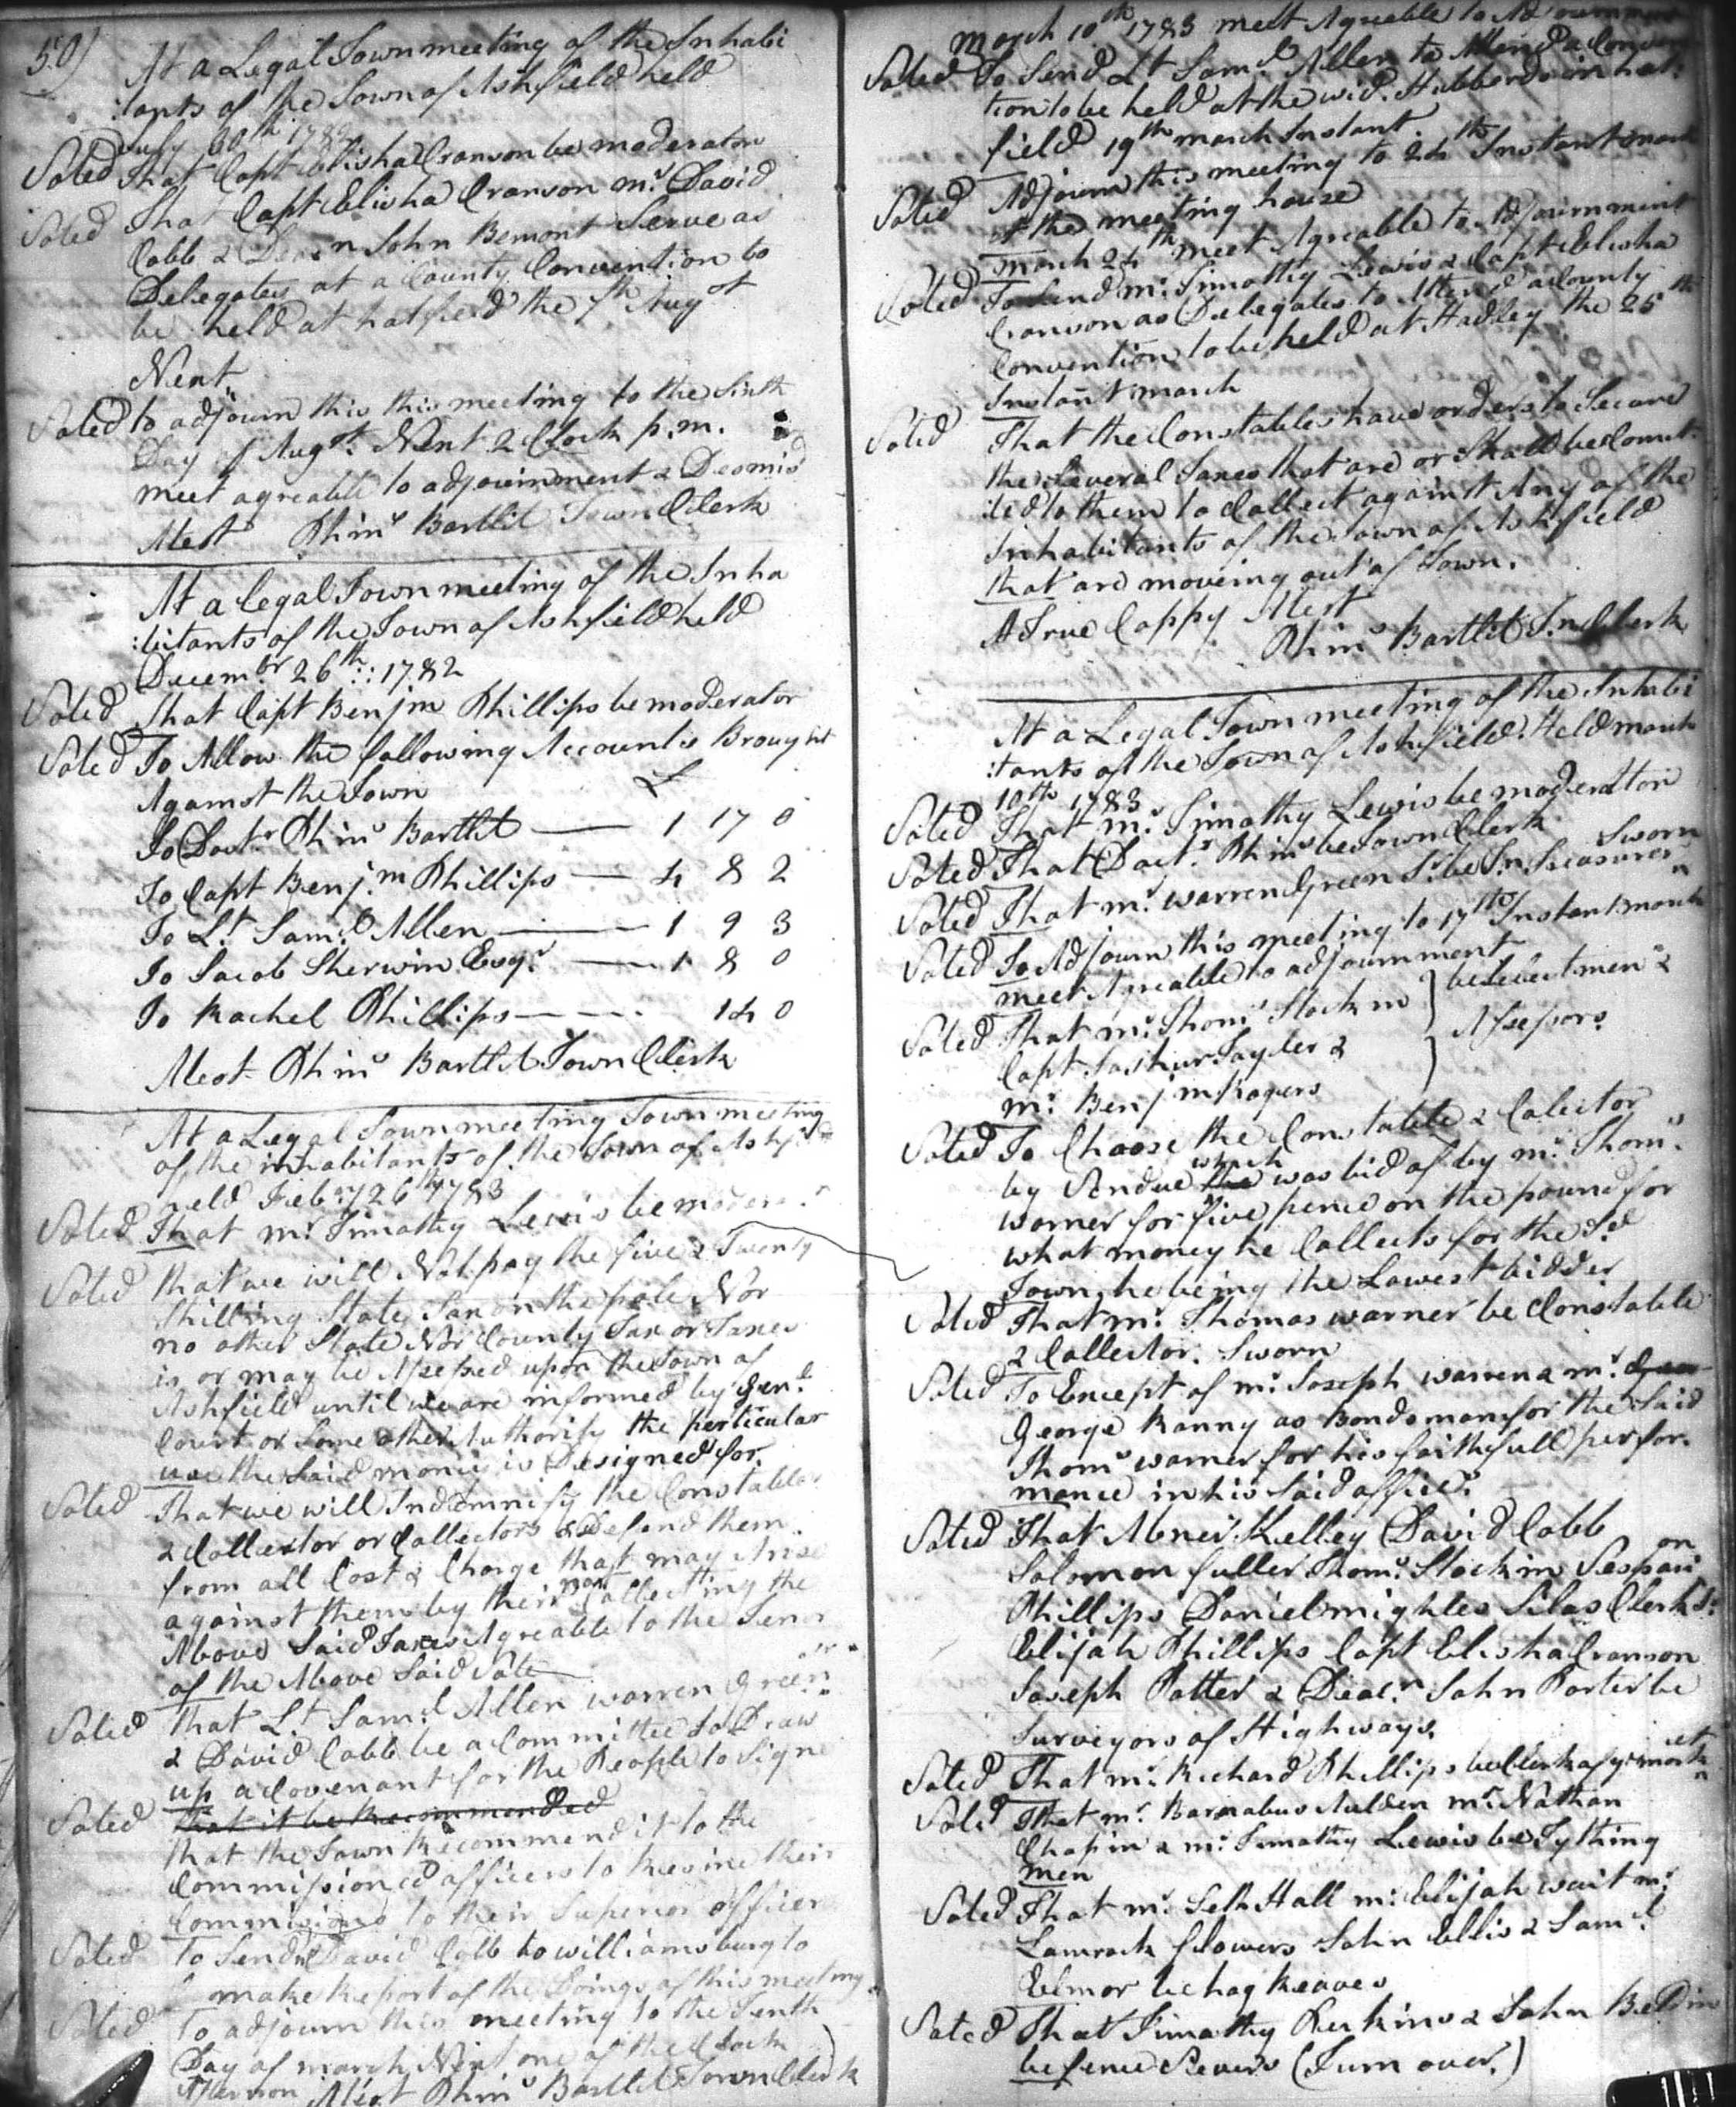 50)
At a Legal Town meeting of the Inhabi
:tants of the Town of Ashfield held
July 30th 1782
Voted That Capt Elisha Cranson be moderator
Voted That Capt Elisha Cranson mr. David
Cobb & Deacn John Bement Serve as
Delegates at a County Convention to
be held at hatfield the 7th Augst
Next
Voted to adjourn this this meeting to the Sixth
Day of Augst. Next 2 Clock p.m.
meet agreable to adjournment & Desmisd
Atest Phins Bartlit Town Clerk
At a legal Town meeting of the Inha
:bitants of the Town of Ashfield held
Decembr 26th: 1782
Voted That Capt Benjm Phillips be moderator
Voted To Allow the following Accounts Brought
Against the Town £
To Doctr Phins Bartlit — 1 17 0
To Capt Benj.m Phillips — 4 8 2
To Lt Samll Allen — 1 9 3
To Jacob Sherwin Esqr — 1 8 0
To Rachel Phillips — 14 0
Atest Phins Bartlit Town Clerk
At a Legal Town meeting Town meeting
of the inhabitants of the Town of Ashfield
held Febry 26th 1783
Voted That mr. Timothy Lewis be modera.r
Voted that we will Not pay the five & Twenty
Shilling State Tax on the pole Nor
no other State Nor County Tax or Taxes
is or may be Assessed upon the Town of
Ashfield until we are informed by Genl.
Court or Some other Authority the perticular
use the Said money is Designed for.
Voted That we will Indemnify the Constables
& Collector or Collectors & Defend them
from all Cost & Charge that may Arise
against them by their non Collecting the
Above Said Taxes Agreable to the Tenor
of the Above Said Vote
Voted That Lt Samll Allen warren Green Jr.
& David Cobb be a Committee to Draw
up a Covenant for the People to Signe
Voted that it be Recommended
that the Town Recommend it to the
Commissioned officers to Resine their
Commisions to their Superior officer
Voted to Send David Cobb to williamsburg to
make Report of the Doings of this meeting
Voted to adjourn this meeting to the Tenth
Day of march Next one of the Clock
Afternon Atest Phins Bartlit Town Clerk
march 10th 1783 meet Agreable to Adjournment
Voted To Send Lt Samll Allen to Attend a Conven
tion to be held at the wid. Hubbords in hat:
field 19th march Instant.
Voted Adjourn this meeting to 24th Instant march
at the meeting house
march 24th meet Agreable to Adjournment
Voted To Send mr. Timothy Lewis & Capt Elisha
Cranson as Delegates to Attend a County
Convention to be held at Hadley the 25th
Instant march
Voted That the Constables have orders to Secure
the Several Taxes that are or Shall be Comit
:ted to them to Collect against Any of the
Inhabitants of the Town of Ashfield
that are moveing out of Town.
A True Coppy Atest
Phins Bartlit Tn Clerk
At a Legal Town meeting of the Inhabi
:tants of the Town of Ashfield Held march
10th 1783
Voted That mr. Timothy Lewis be moderator
Voted That Doctr. Phins be Town Clerk Sworn
Voted That mr. warren Green Sr. be Tn Treasurer
Voted To Adjourn this meeting to 17th Instant march
meet Agreable to adjournment
Voted That mr. Thoms Stockin } be Select men &
Capt. Lasher Tayler & } Assessors
mr. Benjm Rogers
Voted To Choose the Constable & Colector
by Vendue the which was bid of by mr. Thoms.
warner for five pence on the pound for
what money he Collects for the Sd
Town he being the Lowest bidder
Voted That mr. Thomas warner be Constable
& Collector. Sworn
Voted To Except of mr. Joseph warren & mr.
George Ranny as Bondsman for the Said
Thoms warner for his faithfull perfor:
mance in his Said office.
Voted That Abner Kelley David Cobb
Solomon fuller Thoms. Stockin Vespasion
Phillips Daniel mighles Silas Clerk Sr.
Elijah Phillips Capt Elisha Cranson
Joseph Potter & Deacn John Porter be
Surveyors of Highways.
Voted That mr. Richard Phillips be Clerk of ye market
Voted That mr. Barnabus Aulden mr. Nathan
Chapin & mr. Timothy Lewis be Tything
men
Voted That mr. Seth Hall mr. Elijah wait mr.
Lamrock flowers John Ellis & Samll
Elmor be hog Reaves
Voted That Timothy Perkins & John Beldin
be fence Viewers (Turn over.)